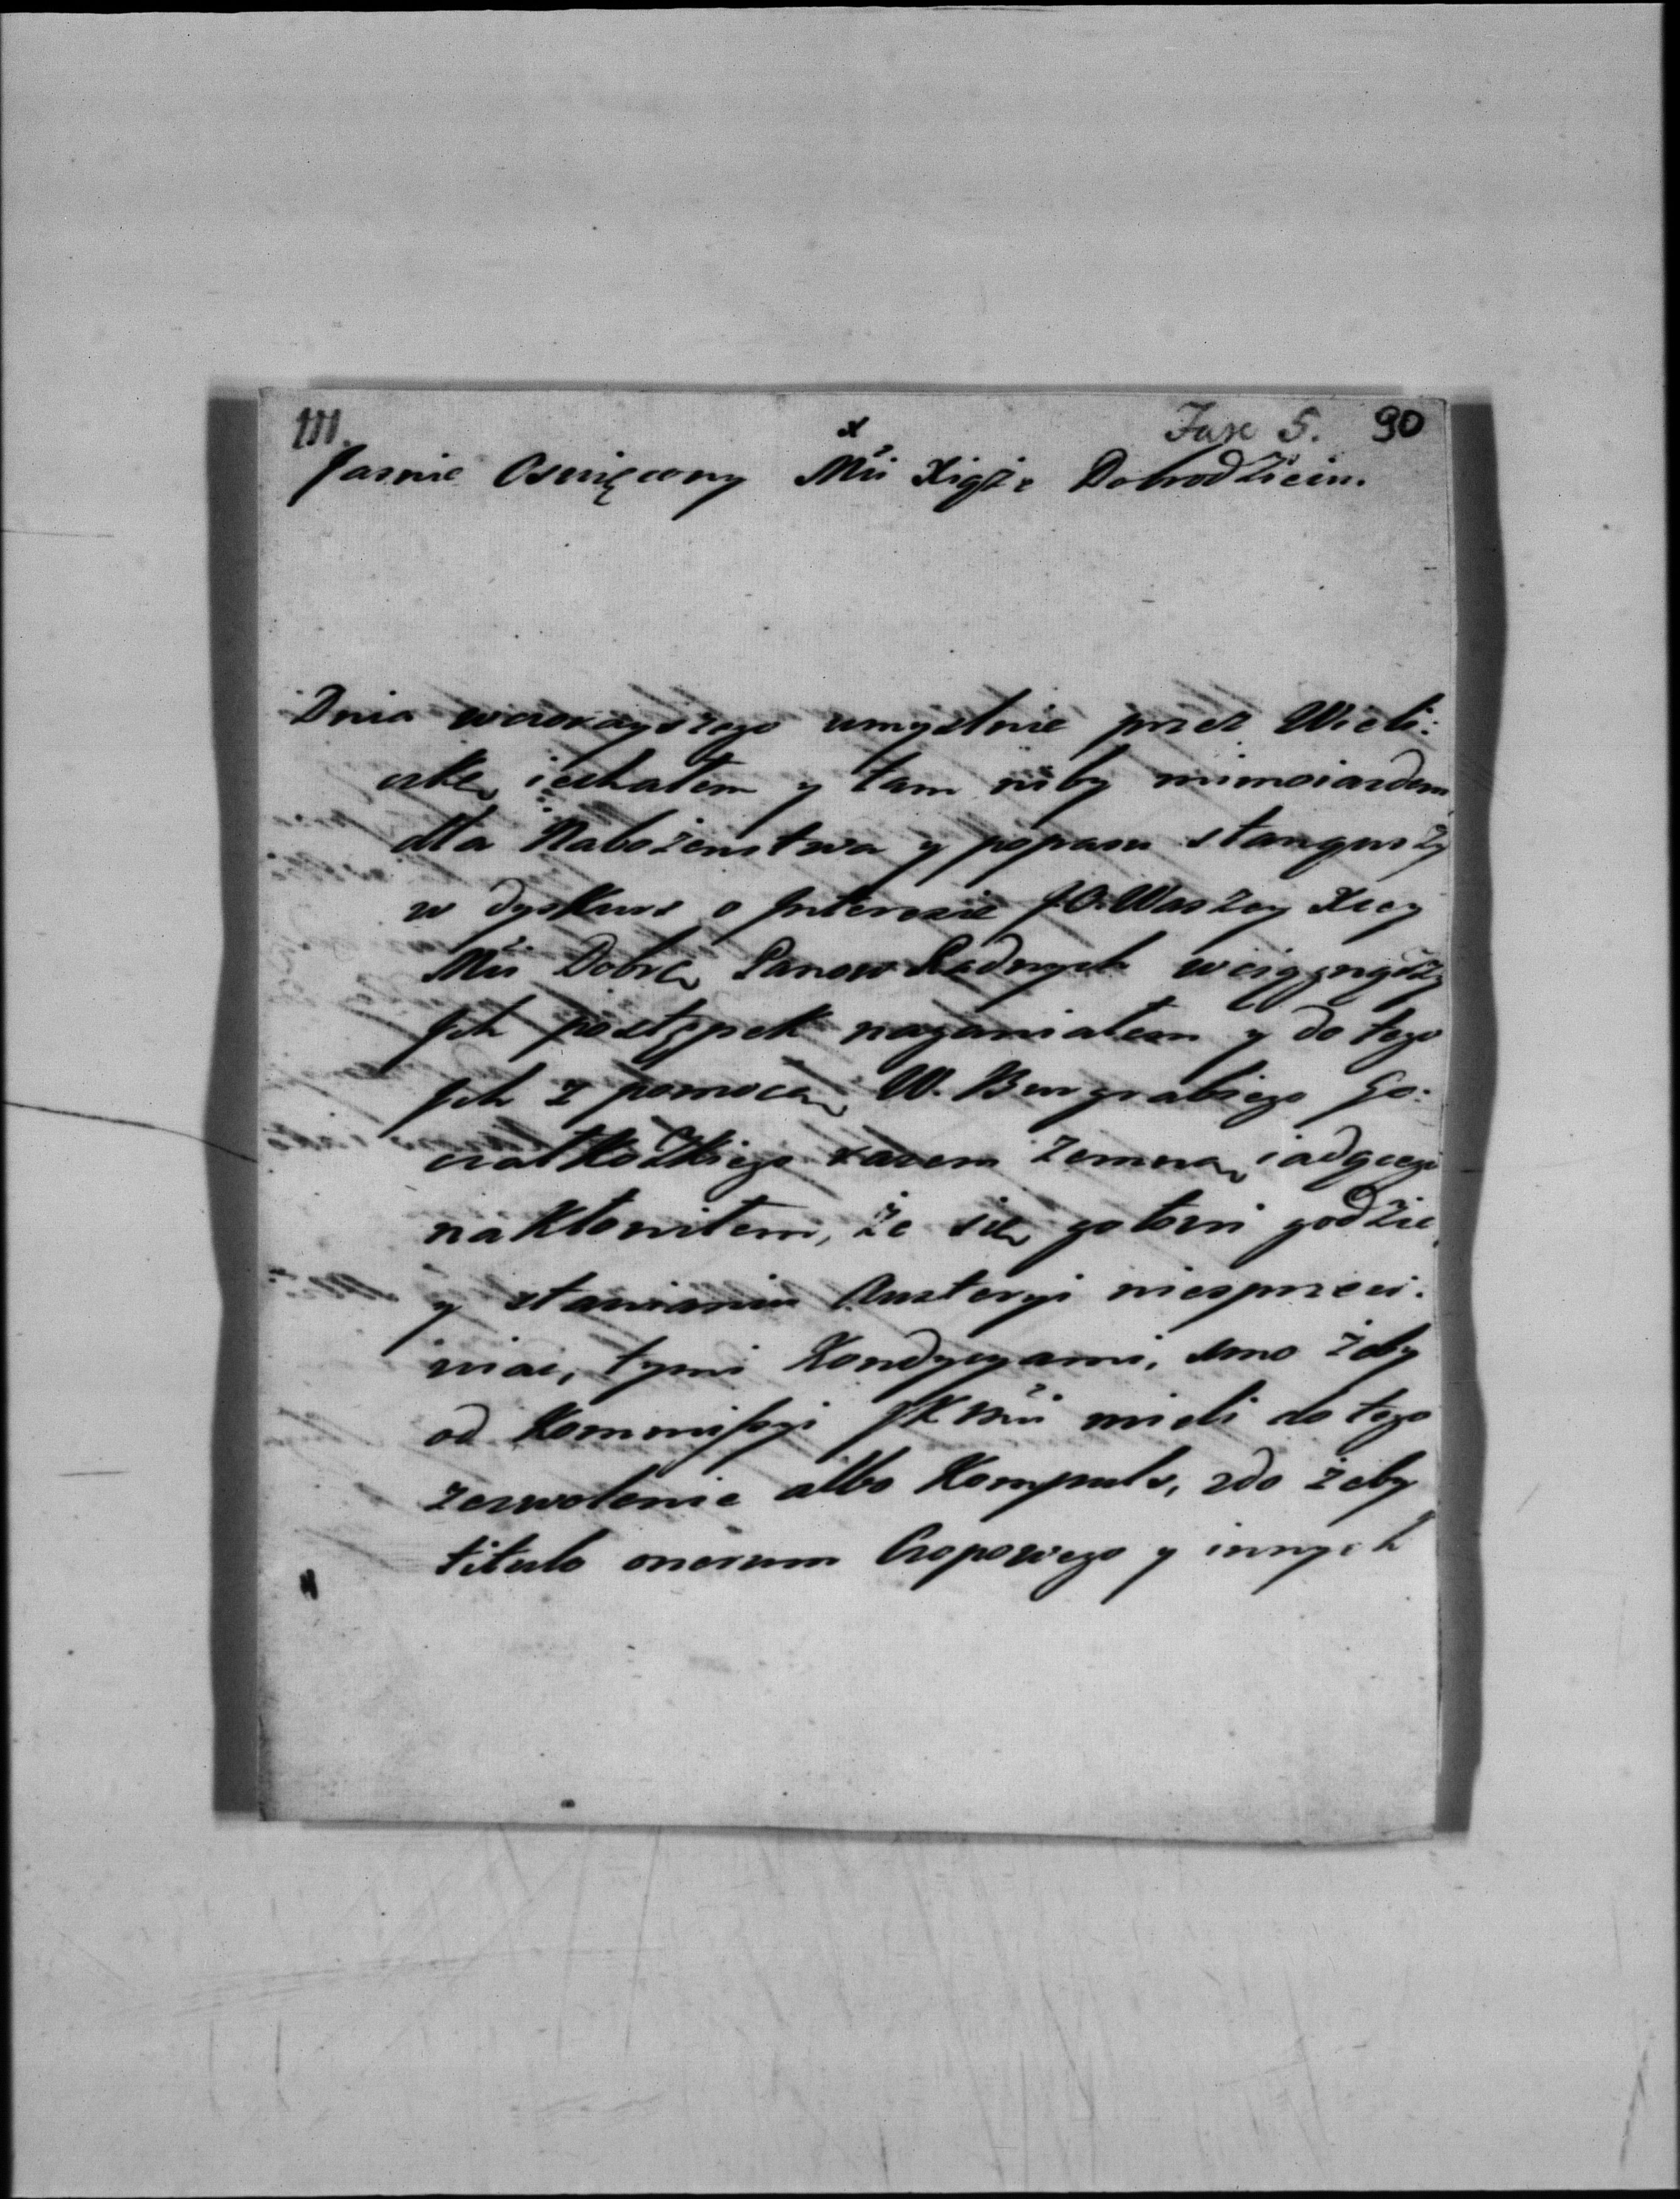 111. x Fasc 5. 90
Jasnie Oswięcony Mći Xiąże Dobrodzieiu.
Dnia wczorayszego umyslnie przez Wieli:
czkę iechałem y tam niby mimoiazdem
dla Nabożenstwa y popasu stanąwszy
w dyskurs o Jnteresie J.O. Waszey Xcey
Mći Dobrã Panow Radnych wciągnąwszy
Jch postępek naganiałem y do tego
Jch z pomocą W. Burgrabiego Go:
czałkowskiego razem zemną iadącego
nakłoniłem, że się gotowi godzić
y stawianiu Austeryi niesprzeci:
wiać, tymi Kondycyami, 1mo żeby
od Kommissyi JKMći mieli do tego
zezwolenie albo Kompuls, 2do żeby
titulo onerum Czopowego y innych